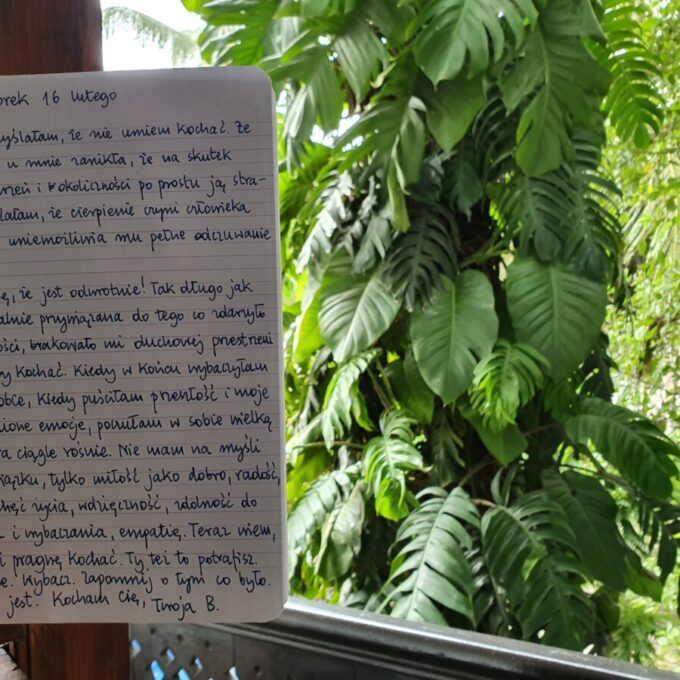 orek 16 lutego
yślałam, że nie umiem kochać. Że
u mnie zanikła, że na skutek
rzeń i okoliczności po prostu ją stra-
lałam, że cierpienie czyni człowieka
uniemożliwia mu pełne odczuwanie
ę, że jest odwrotnie! Tak długo jak
alnie przywiązana do tego co zdarzyło
ości, brakowało mi duchowej przestrzeni
y kochać. Kiedy w końcu wybaczyłam
obie, kiedy puściłam przeszłość i moje
ione emocje, poczułam w sobie wielką
ra ciągle rośnie. Nie mam na myśli
iązku, tylko miłość jako dobro, radość,
chęć życia, wdzięczność, zdolność do
i wybaczania, empatię. Teraz wiem,
i pragnę kochać. Ty też to potrafisz.
e. Wybacz. Zapomnij o tym co było.
jest. Kocham Cię, Twoja B.